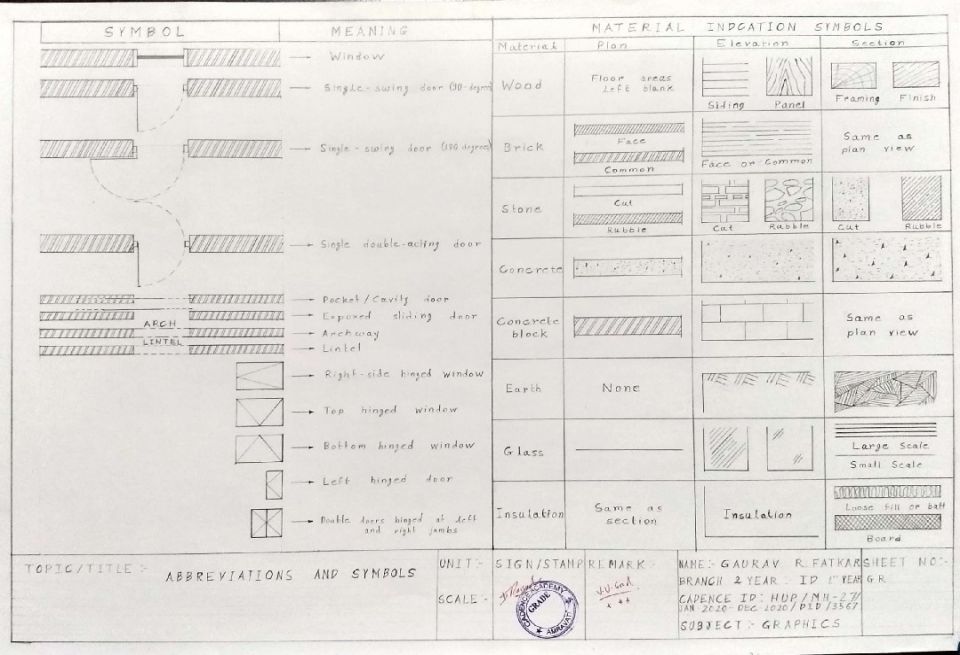 SYMBOL
MEANING
Window
Single-swing door (90-degree)
Single-swing door (180 degrees)
Single double-acting door
Pocket/Cavity door
Exposed sliding door
ARCH
Archway
LINTEL
Lintel
Right-side hinged window
Top hinged window
Bottom hinged window
Left hinged door
Double doors hinged at left
and right jambs
MATERIAL INDCATION SYMBOLS
Material Plan Elevation Section
Wood
Floor areas
Left blank
Siding Panel
Framing Finish
Brick
Face
Common
Face or Common
Same as
plan view
Stone
Cut
Rubble
Cut Rubble
Cut Rubble
Concrete
Concrete
block
Same as
plan view
Earth
None
Glass
Large Scale
Small Scale
Insulation
Same as
section
Insulation
Loose fill or batt
Board
TOPIC/TITLE :-
ABBREVIATIONS AND SYMBOLS
UNIT:-
SCALE:-
SIGN/STAMP
CADENCE ACADEMY
GRADE
AMRAVATI
REMARK:-
NAME:- GAURAV R. FATKAR
BRANCH & YEAR : ID 1st YEAR
CADENCE ID: HUP/MH-27/
JAN 2020-DEC-2020/DID/3567
SUBJECT:- GRAPHICS
SHEET NO:-
G.R.